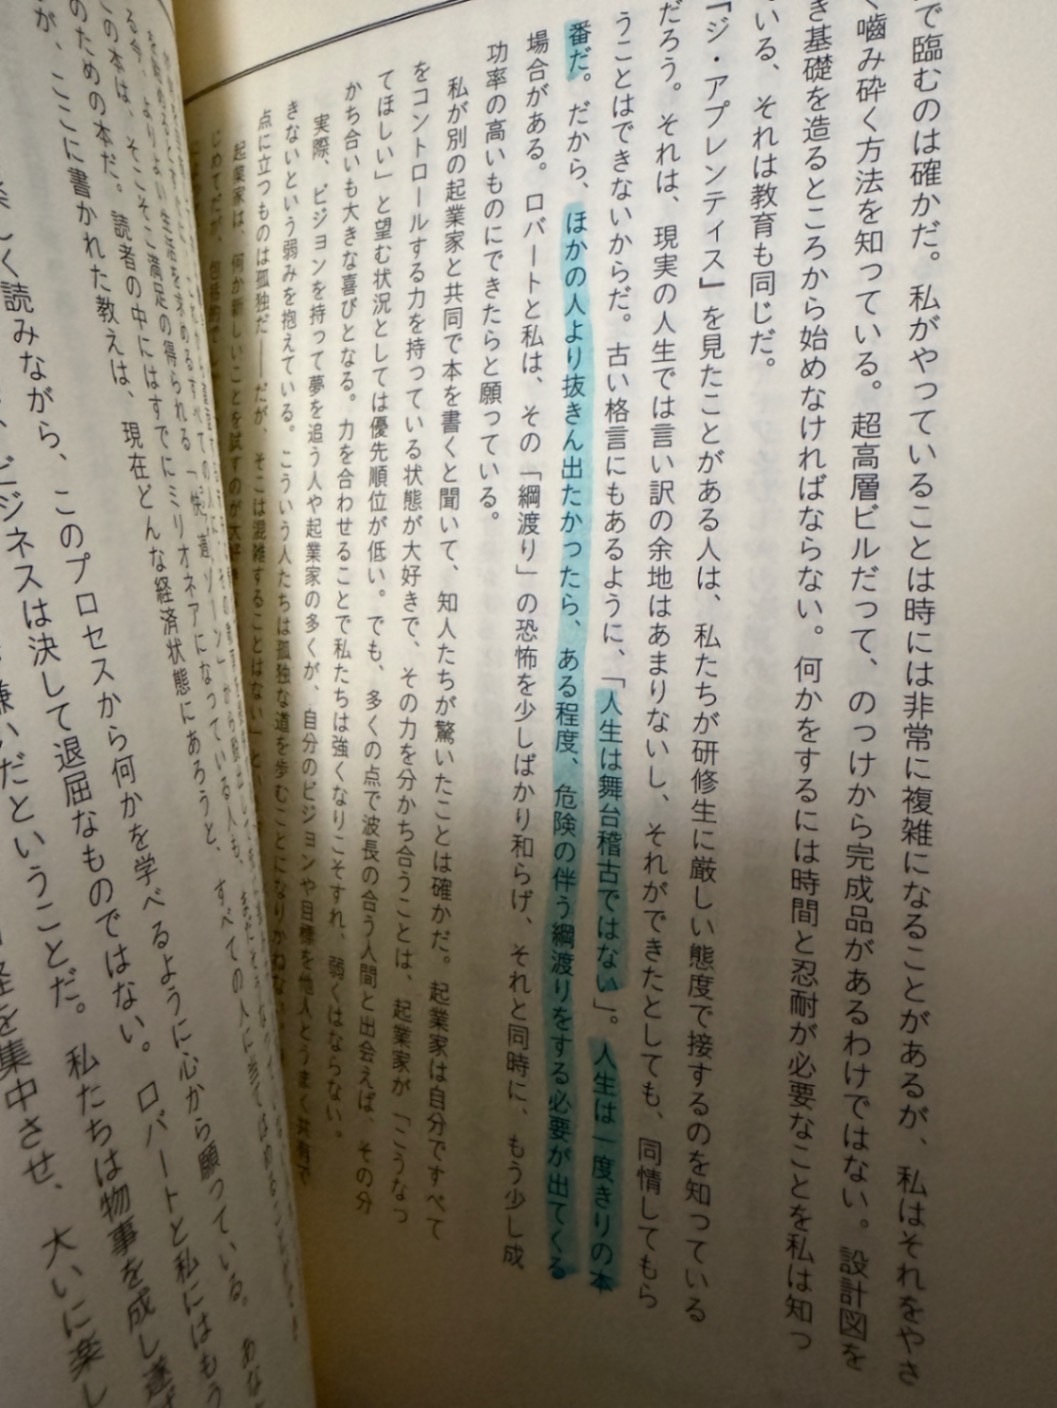 で臨むのは確かだ。私がやっていることは時には非常に複雑になることがあるが、私はそれをやさ
く嚙み砕く方法を知っている。超高層ビルだって、のっけから完成品があるわけではない。設計図を
き基礎を造るところから始めなければならない。何かをするには時間と忍耐が必要なことを私は知っ
いる、それは教育も同じだ。
『ジ・アプレンティス』を見たことがある人は、私たちが研修生に厳しい態度で接するのを知っている
だろう。それは、現実の人生では言い訳の余地はあまりないし、それができたとしても、同情してもら
うことはできないからだ。古い格言にもあるように、「人生は舞台稽古ではない」。人生は一度きりの本
番だ。だから、ほかの人より抜きん出たかったら、ある程度、危険の伴う綱渡りをする必要が出てくる
場合がある。ロバートと私は、その「綱渡り」の恐怖を少しばかり和らげ、それと同時に、もう少し成
功率の高いものにできたらと願っている。
私が別の起業家と共同で本を書くと聞いて、知人たちが驚いたことは確かだ。起業家は自分ですべて
をコントロールする力を持っている状態が大好きで、その力を分かち合うことは、起業家が「こうなっ
てほしい」と望む状況としては優先順位が低い。でも、多くの点で波長の合う人間と出会えば、その分
かち合いも大きな喜びとなる。力を合わせることで私たちは強くなりこそすれ、弱くはならない。
実際、ビジョンを持って夢を追う人や起業家の多くが、自分のビジョンや目標を他人とうまく共有で
きないという弱みを抱えている。こういう人たちは孤独な道を歩むことになりかねない。
点に立つものは孤独だ――だが、そこは混雑することはない」
起業家は、何か新しいことを試すのが大好き
じめてだが、
この本は、そこそこ満足の得られる「快適ゾーン」から
のための本だ。読者の中にはすでにミリオネアになっている人も、
が、ここに書かれた教えは、現在どんな経済状態にあろうと、すべての人に
楽しく読みながら、このプロセスから何かを学べるように心から願っている。あな
ビジネスは決して退屈なものではない。ロバートと私にはもう
嫌いだということだ。私たちは物事を成し遂げ
を集中させ、大いに楽し